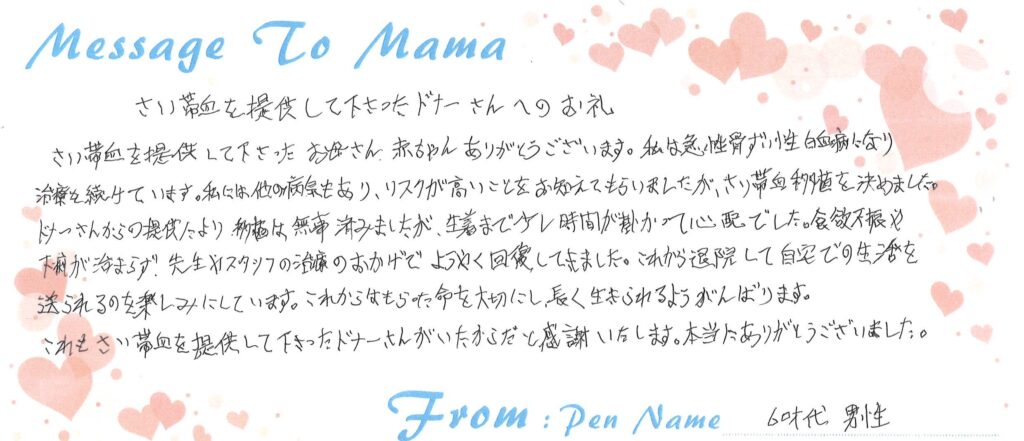 Message To Mama
さい帯血を提供して下さったドナーさんへのお礼
さい帯血を提供して下さったお母さん、赤ちゃんありがとうございます。私は急性骨ずい性白血病になり
治療を続けています。私には他の病気もあり、リスクが高いことをお知えてもらいましたが、さい帯血移植を決めました。
ドナーさんからの提供により移植は無事済みましたが、生着まで少し時間が掛かって心配でした。食欲不振や
下痢が治まらず、先生やスタッフの治療のおかげでようやく回復してきました。これから退院して自宅での生活を
送られるのを楽しみにしています。これからはもらった命を大切にし、長く生きられるようがんばります。
これもさい帯血を提供して下さったドナーさんがいたからだと感謝いたします。本当にありがとうございました。
From : Pen Name 60才代 男性